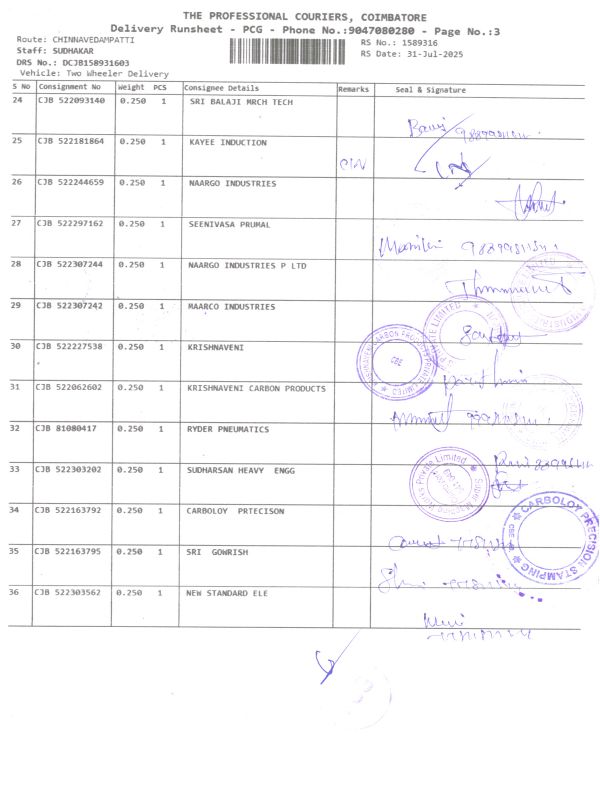 THE PROFESSIONAL COURIERS, COIMBATORE
Delivery Runsheet - PCG - Phone No.:9047080280 - Page No.:3
Route: CHINNAVEDAMPATTI RS No.: 1589316
Staff: SUDHAKAR RS Date: 31-Jul-2025
DRS No.: DCJB158931603
Vehicle: Two Wheeler Delivery
S No Consignment No Weight PCS Consignee Details Remarks Seal & Signature
24 CJB 522093140 0.250 1 SRI BALAJI MRCH TECH
25 CJB 522181864 0.250 1 KAYEE INDUCTION
26 CJB 522244659 0.250 1 NAARGO INDUSTRIES
27 CJB 522297162 0.250 1 SEENIVASA PRUMAL
28 CJB 522307244 0.250 1 NAARGO INDUSTRIES P LTD
29 CJB 522307242 0.250 1 MAARCO INDUSTRIES
30 CJB 522227538 0.250 1 KRISHNAVENI
31 CJB 522062602 0.250 1 KRISHNAVENI CARBON PRODUCTS
32 CJB 81080417 0.250 1 RYDER PNEUMATICS
33 CJB 522303202 0.250 1 SUDHARSAN HEAVY ENGG
34 CJB 522163792 0.250 1 CARBOLOY PRTECISON
35 CJB 522163795 0.250 1 SRI GOWRISH
36 CJB 522303562 0.250 1 NEW STANDARD ELE
CBE
CARBOLOY PRECISION STAMPING